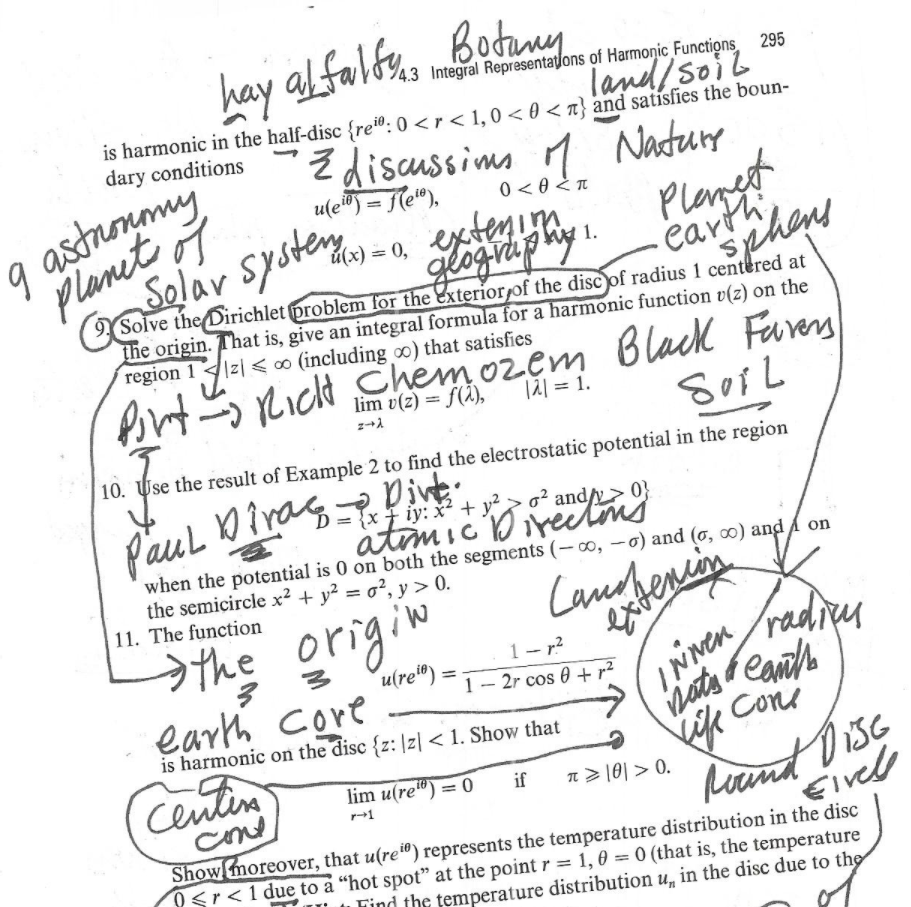 Botany
4.3 Integral Representations of Harmonic Functions 295
hay alfalfa
land/soil
is harmonic in the half-disc {re^{iθ}: 0 < r < 1, 0 < θ < π} and satisfies the boun-
dary conditions
discussions of Nature
u(e^{iθ}) = f(e^{iθ}), 0 < θ < π
9 astronomy
planets of
Solar system
u(x) = 0, 1.
geography
Planet
earth
9. Solve the Dirichlet problem for the exterior of the disc of radius 1 centered at
the origin. That is, give an integral formula for a harmonic function v(z) on the
region 1 < |z| ⩽ ∞ (including ∞) that satisfies
→ Rich
Black
Soil
lim v(z) = f(λ), |λ| = 1.
z→λ
10. Use the result of Example 2 to find the electrostatic potential in the region
Paul Dirac →
D = {x + iy: x² + y² > σ² and y > 0}
atomic Directions
when the potential is 0 on both the segments (−∞, −σ) and (σ, ∞) and 1 on
the semicircle x² + y² = σ², y > 0.
11. The function
the origin
u(re^{iθ}) = 1 − r² / 1 − 2r cos θ + r²
radius
earth
life core
earth core
is harmonic on the disc {z: |z| < 1. Show that
Round Disc
Circle
core
lim u(re^{iθ}) = 0 if π ⩾ |θ| > 0.
r→1
Show, moreover, that u(re^{iθ}) represents the temperature distribution in the disc
0 ⩽ r < 1 due to a “hot spot” at the point r = 1, θ = 0 (that is, the temperature
Find the temperature distribution uₙ in the disc due to the
of